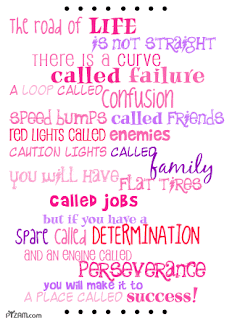 The road of LIFE
is not straight
There is a curve
called failure
A LOOP CALLED
Confusion
speed bumps called Friends
RED LIGHTS CALLED enemies
CAUTION LIGHTS CALLED
family
you will have
FLAT TIRES
called jobs
but if you have a
Spare Called DETERMINATION
AND AN ENGINE CALLED
PERSEVERANCE
you will make it to
A PLACE CALLED success!
PYZAM.com